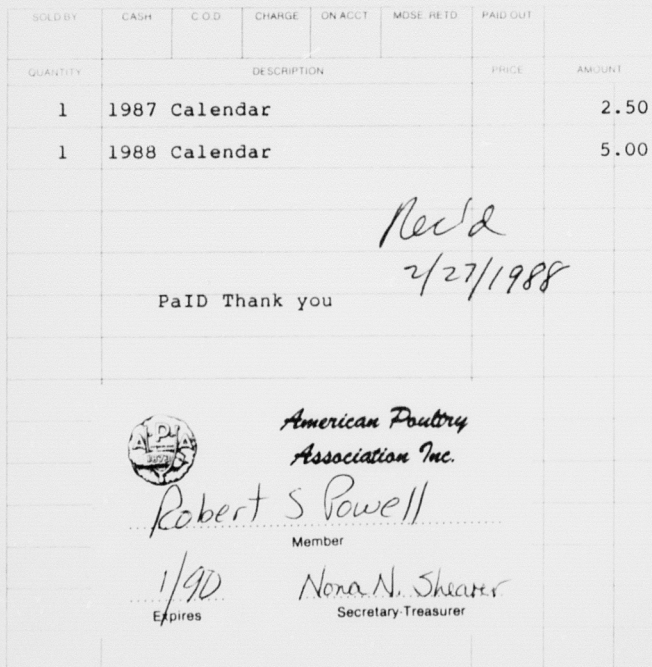 SOLD BY CASH C.O.D. CHARGE ON ACCT. MDSE. RETD. PAID OUT
QUANTITY DESCRIPTION PRICE AMOUNT
1 1987 Calendar 2.50
1 1988 Calendar 5.00
Rec'd
2/27/1988
PaID Thank you
American Poultry
Association Inc.
APA
Robert S Powell
Member
1/90 Nona N. Shearer
Expires Secretary-Treasurer